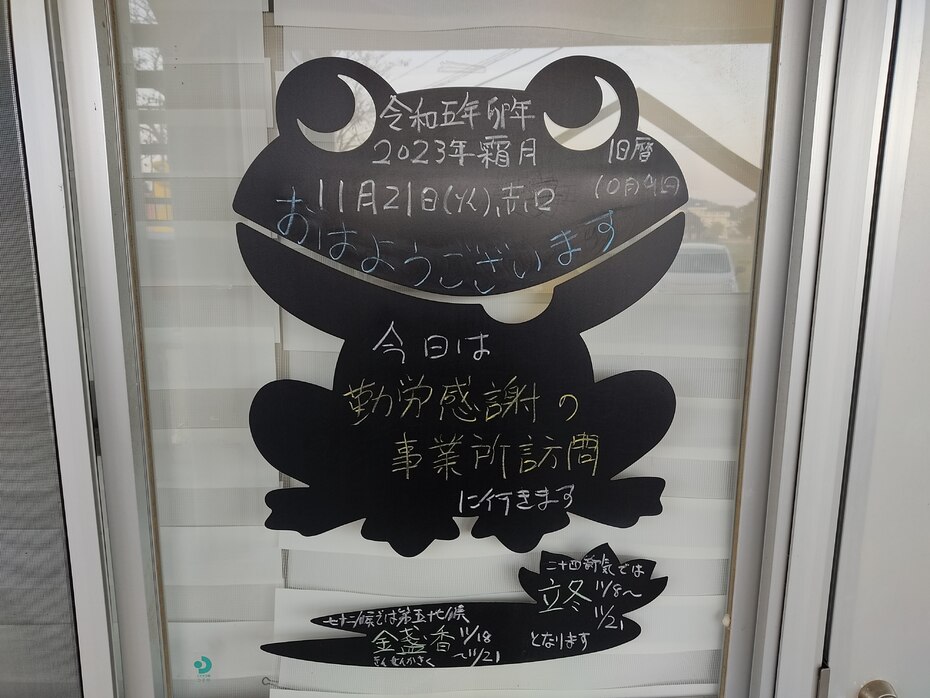 令和五年卯年
2023年霜月
旧暦
11月21日(火)赤口
10月9日
おはようございます
今日は
勤労感謝の
事業所訪問
に行きます
二十四節気では
立冬 11/8〜
11/21
となります
七十二候では第五十七候
金盞香 11/18
きんせんかさく 〜11/21